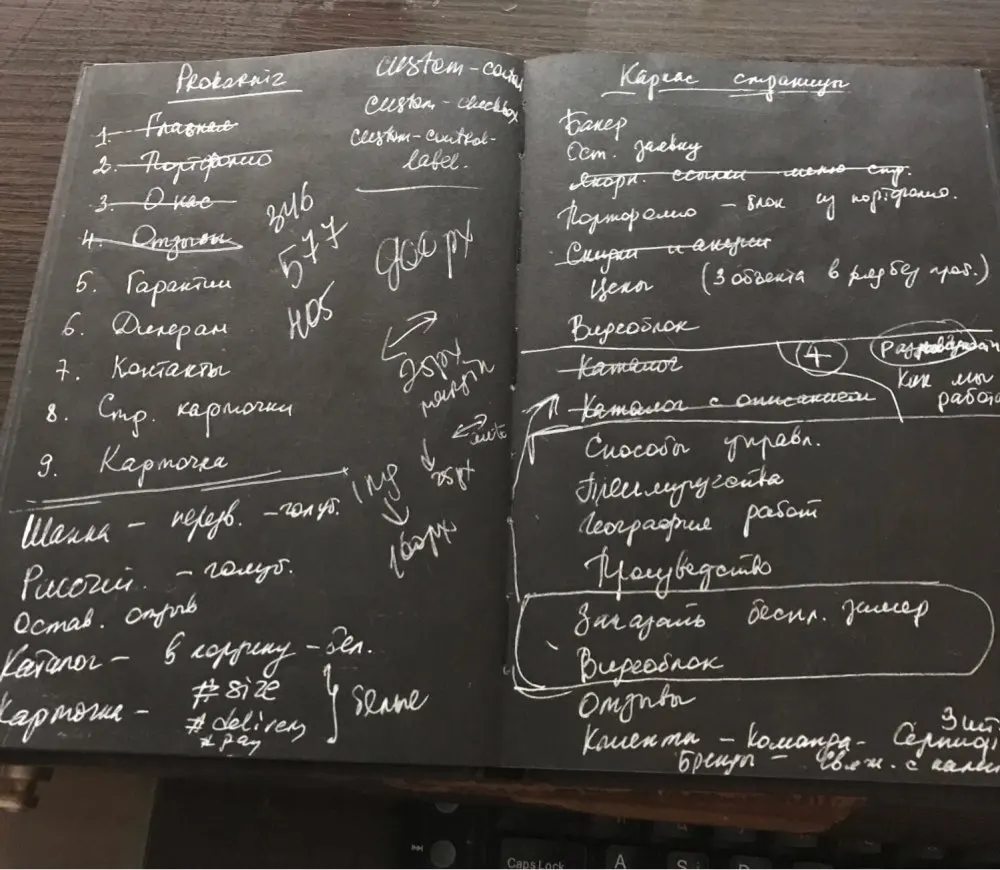 Prokarniz
1. Главная
2. Портфолио
3. О нас
4. Отзывы
5. Гарантии
6. Дилерам
7. Контакты
8. Стр. карточки
9. Карточка
custom-
custom-checkbox
custom-control-
label.
346
577
405
900px
25px
margin
25px
160px
Шапка – перезв. – голуб.
Рисочки – голуб.
Остав. отзыв
Каталог – в корзину – бел.
Карточка – # size
# delivery
# pay
белые
Каркас страницы
Банер
Ост. заявку
Якорн. ссылки меню стр.
Портфолио – блок из портфолио.
Скидки и акции
Цены (3 объекта в ряд без проб.)
Видеоблок
Каталог
4
Как мы
работа
Каталог с описанием
Способы управл.
Преимущества
География работ
Производство
Заказать беспл. замер
Видеоблок
Отзывы
Клиенты – Команда –
Бренды –
Caps Lock
A
S